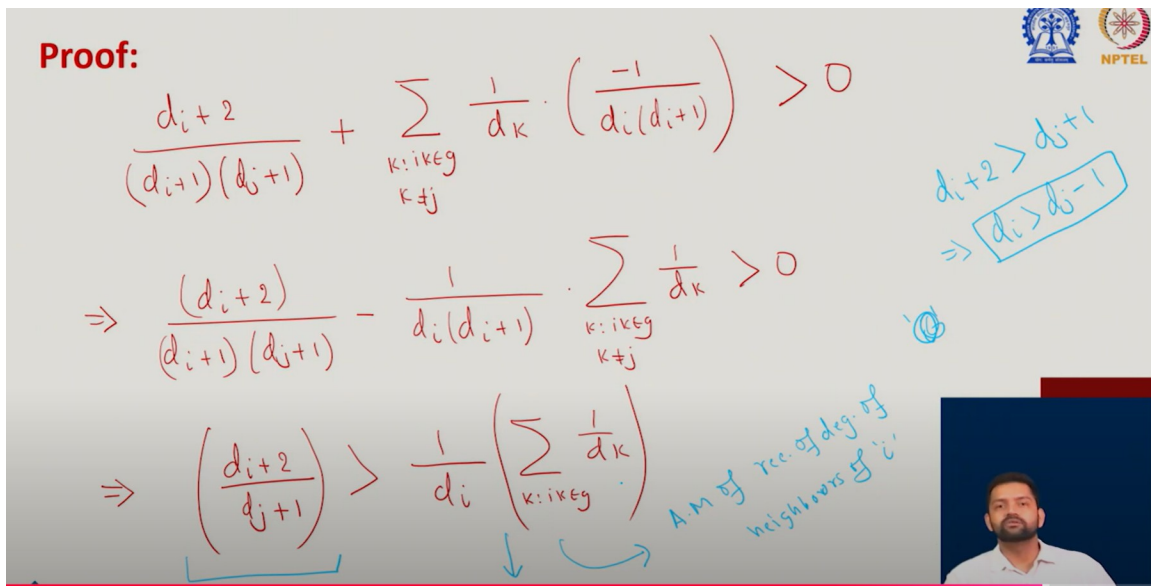 NPTEL
Proof:
(di+2)/((di+1)(dj+1)) + Σ_{k: ik∈g, k≠j} 1/dk · (-1/(di(di+1))) > 0
di+2 > dj+1
⇒ di > dj-1
⇒ (di+2)/((di+1)(dj+1)) - 1/(di(di+1)) · Σ_{k: ik∈g, k≠j} 1/dk > 0
⇒ ((di+2)/(dj+1)) > 1/di (Σ_{k: ik∈g} 1/dk)
A.M of rec. of deg. of
neighbours of 'i'